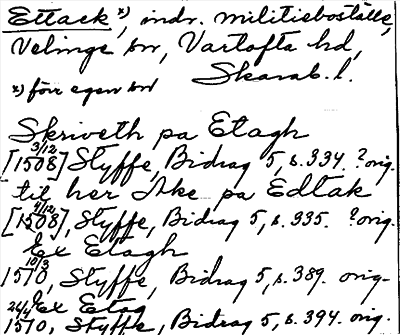 Ettack x), indr. militieboställe,
Velinge sn, Vartofta hd,
Skarab. l.
x) förr egen sn
Skriveth pa Etagh
3/12
[1508] Styffe, Bidrag 5, s. 334. ? orig.
til her Åke pa Edtak
4/12
[1508], Styffe, Bidrag 5, s. 335. ? orig.
Ex Etagh
10/3
1510, Styffe, Bidrag 5, s. 389. orig.
Ex Etag
1510, Styffe, Bidrag 5, s. 394. orig.